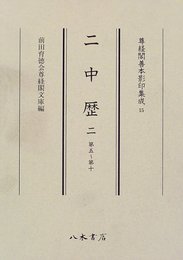 尊経閣善本影印集成 15
二中歴 二
第五~第十
前田育徳会尊経閣文庫編
八木書店